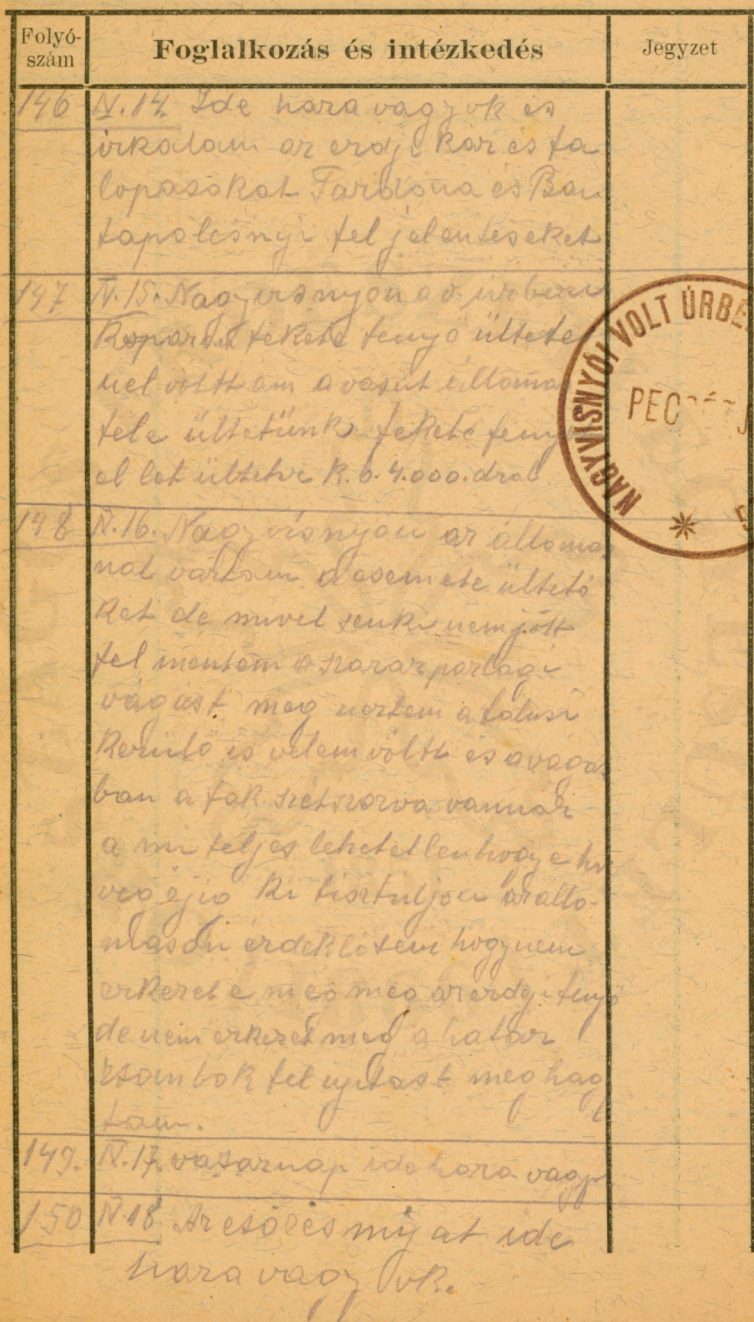 Folyó-
szám
Foglalkozás és intézkedés
Jegyzet
146 IV. 14. Ide haza vagyok és
irkalam az erdei kár és fa
lopasokat Tardona és Ban
tapolcsnyi fel jelenteseket
147 IV. 15. Nagyvisnyón a v. urberi
Koparon fekete fenyő ültete
nel voltam a vasut álloma
fele ültetünk fekete fenyő
el let ültetve K. b. 4.000. drab
NAGYVISNYÓI VOLT ÚRBÉ
PEC
148 IV. 16. Nagyvisnyón az álloma
nal vartam a csemete ültető
ket de mivel senki nem jött
fel mentem a szarazparlagi
vágást meg neztem a falusi
Kerülő is velem voltt és a vágás
ban a fák szétszorva vannak
a mi teljes lehetetlen hogy e hó
vég éjig ki tisztuljon az allo-
máson érdeklőtem hogy nem
erkezet e még meg az erdei fenyő
de nem erkezet meg a hatar
zsombok fel ujitást meg hag
tam.
149. IV. 17. vasarnap ide haza vagy
150 IV. 18 Az esőzés mijat ide
haza vagyok.